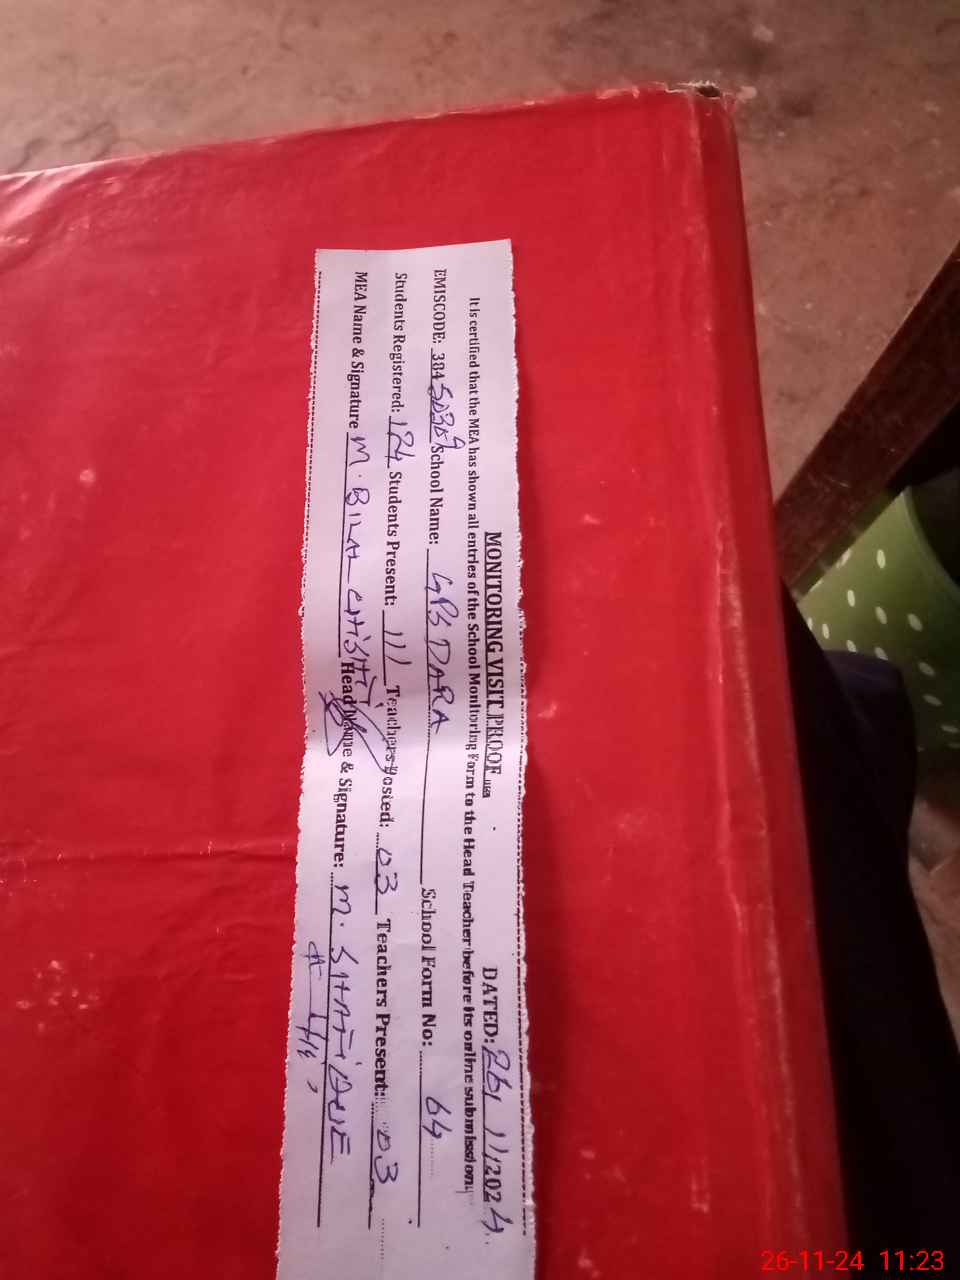 MONITORING VISIT PROOF DATED: 26/11/2024
It is certified that the MEA has shown all entries of the School Monitoring Form to the Head Teacher before its online submission.
EMISCODE: 384 School Name: GPS DARA School Form No: 64
Students Registered: 124 Students Present: 111 Teachers Posted: 03 Teachers Present: 03
MEA Name & Signature M. BILAL CHISHTI Head Name & Signature: M. SHAFIQUE
26-11-24 11:23